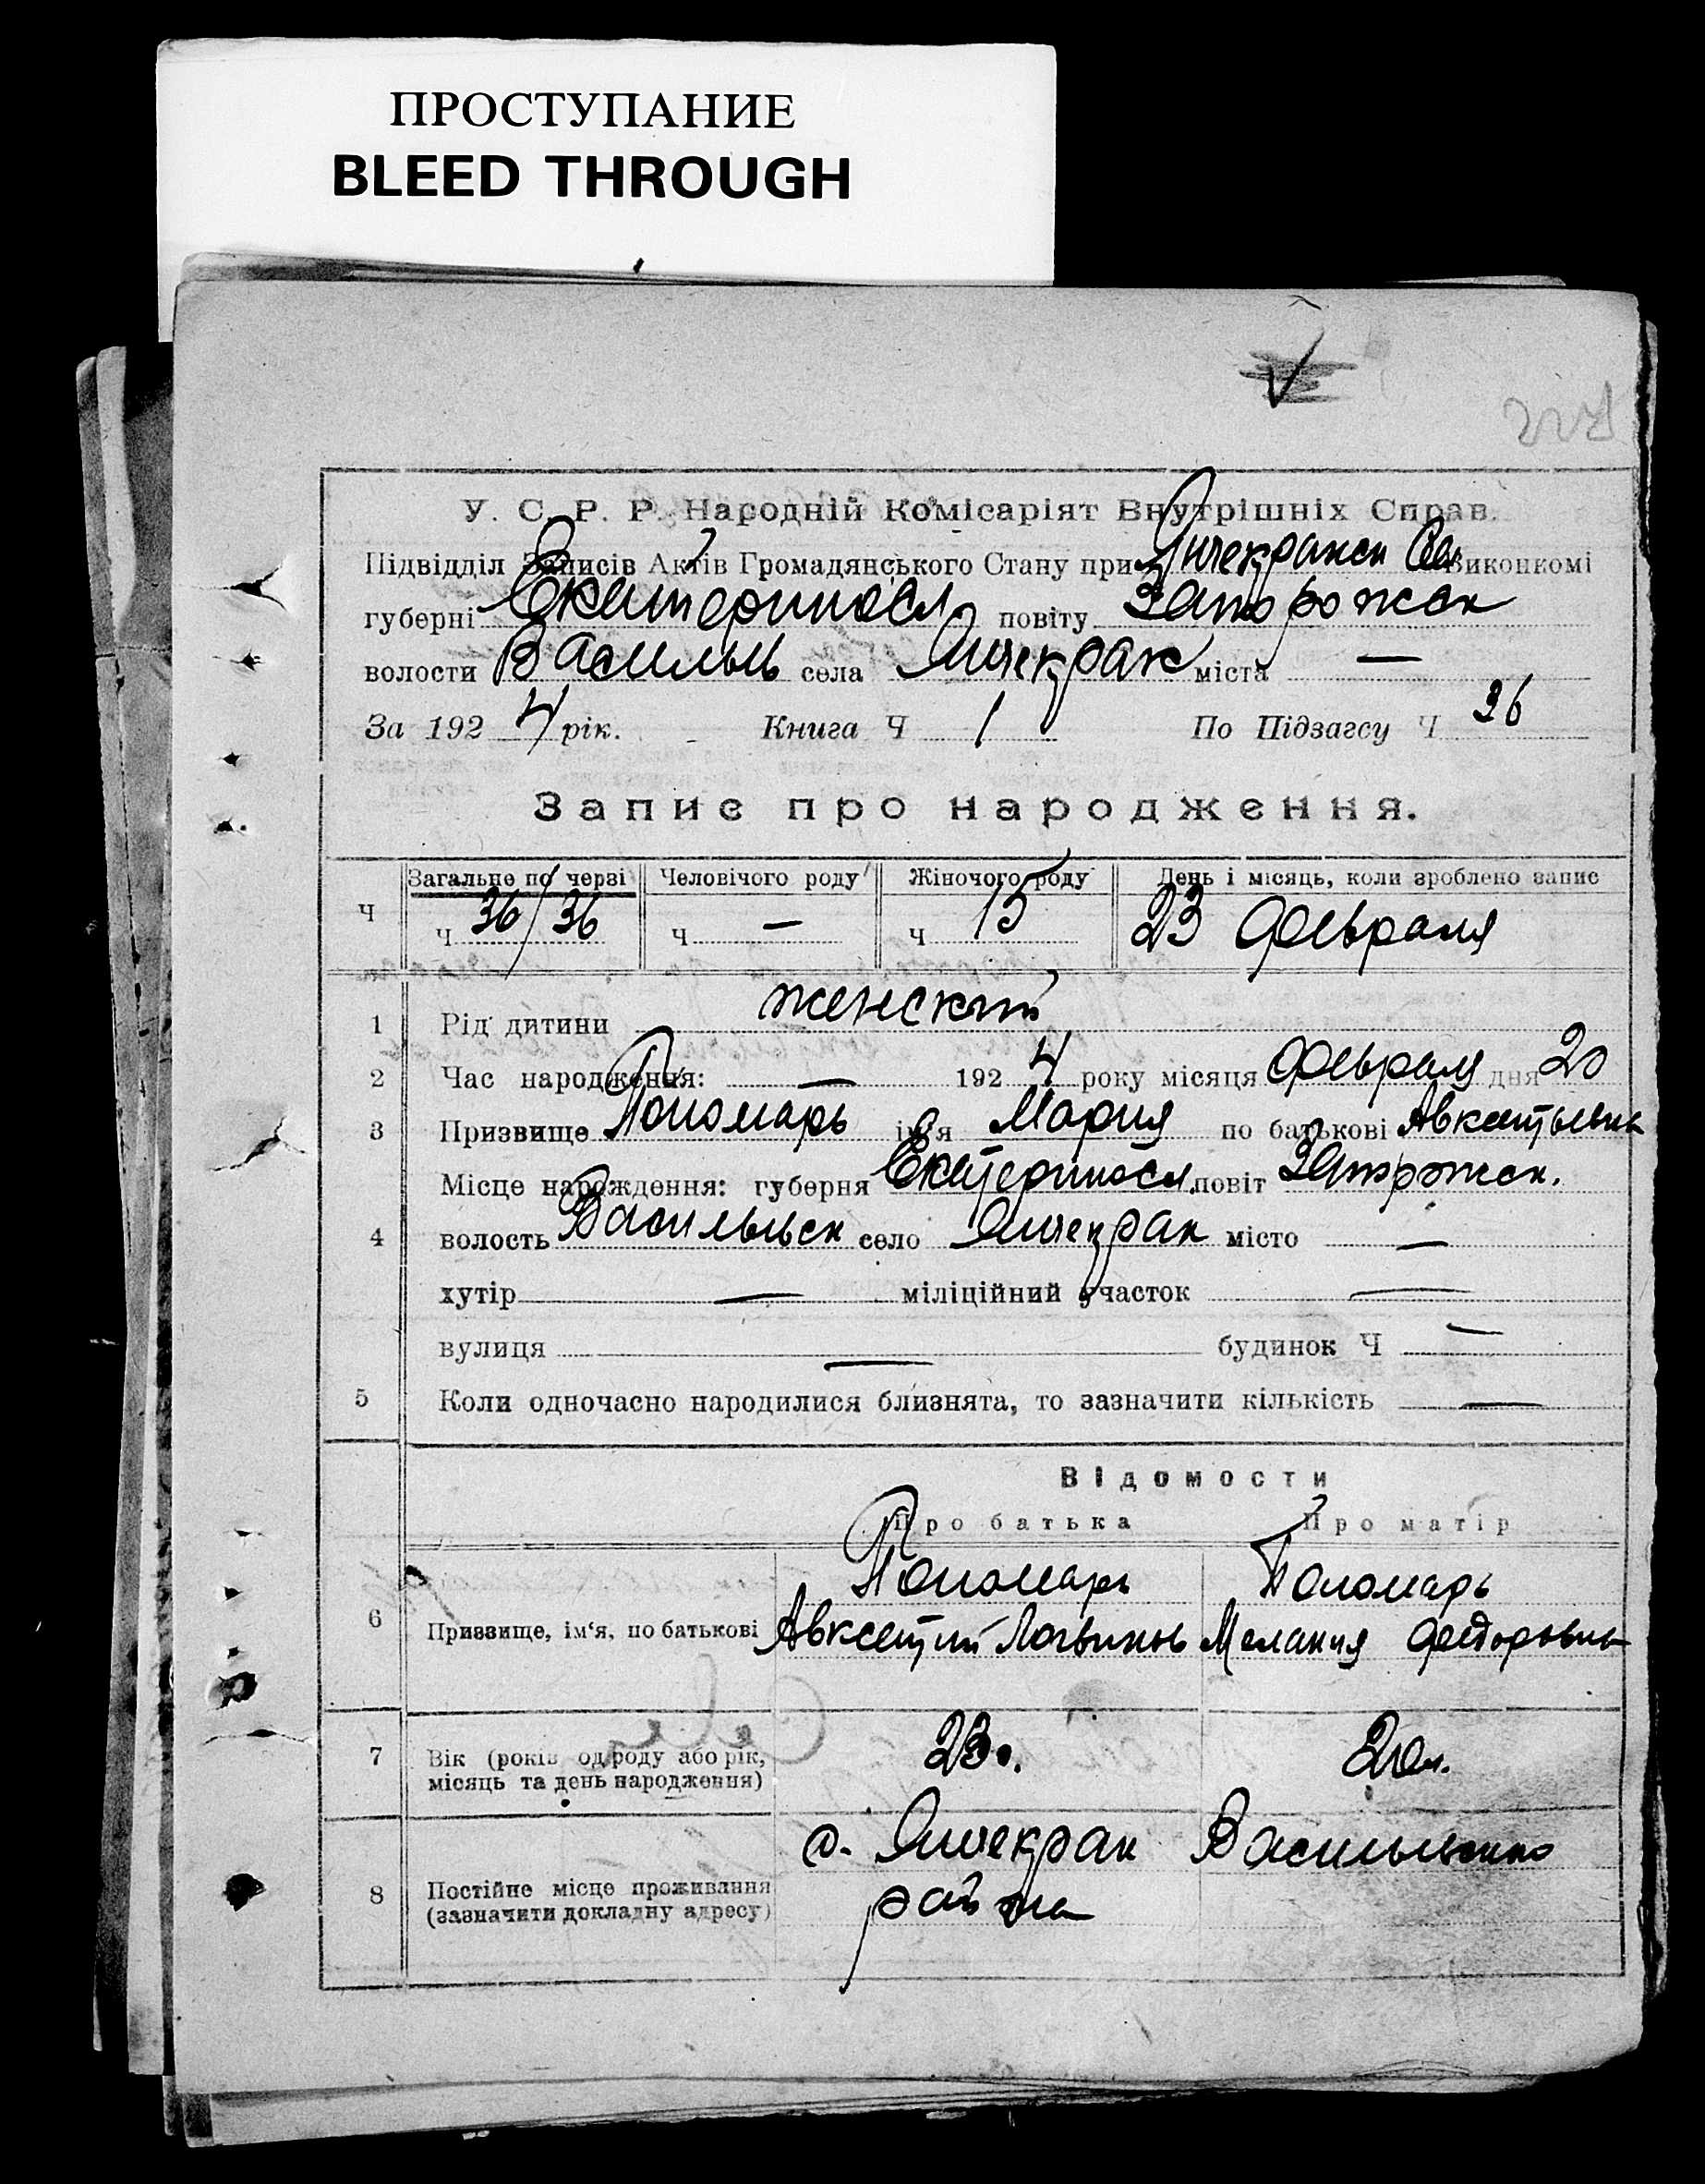 ПРОСТУПАНИЕ
BLEED THROUGH
У. С. Р. Р. Народній Комісаріят Внутрішніх Справ.
Підвідділ Записів Актів Громадянського Стану при Янчекракск Виконкомі
губерні Екатериносл повіту Запорожск
волости Васильев села Янчекрак міста —
За 1924 рік. Книга Ч 1 По Підзагсу Ч 36
Запис про народження.
Загальне по черзі Человічого роду Жіночого роду День і місяць, коли зроблено запис
Ч Ч 36/36 Ч — Ч 15 23 февраля
1 Рід дитини женский
2 Час народження: — 1924 року місяця февраля дня 20
3 Призвище Пономарь ім'я Мария по батькові Авксентьевна
Місце народження: губерня Екатериносл. повіт Запорожск.
4 волость Васильевск село Янчекрак місто —
хутір — міліційний участок —
вулиця — будинок Ч —
5 Коли одночасно народилися близнята, то зазначити кількість —
Відомости
Про батька Про матір
Пономарь Пономарь
6 Призвище, ім'я, по батькові Авксентий Логвинов Мелания Федоровна
7 Вік (років од роду або рік, місяць та день народження) 23 20 л.
с. Янчекрак Васильевско
8 Постійне місце проживання района
(зазначити докладну адресу)